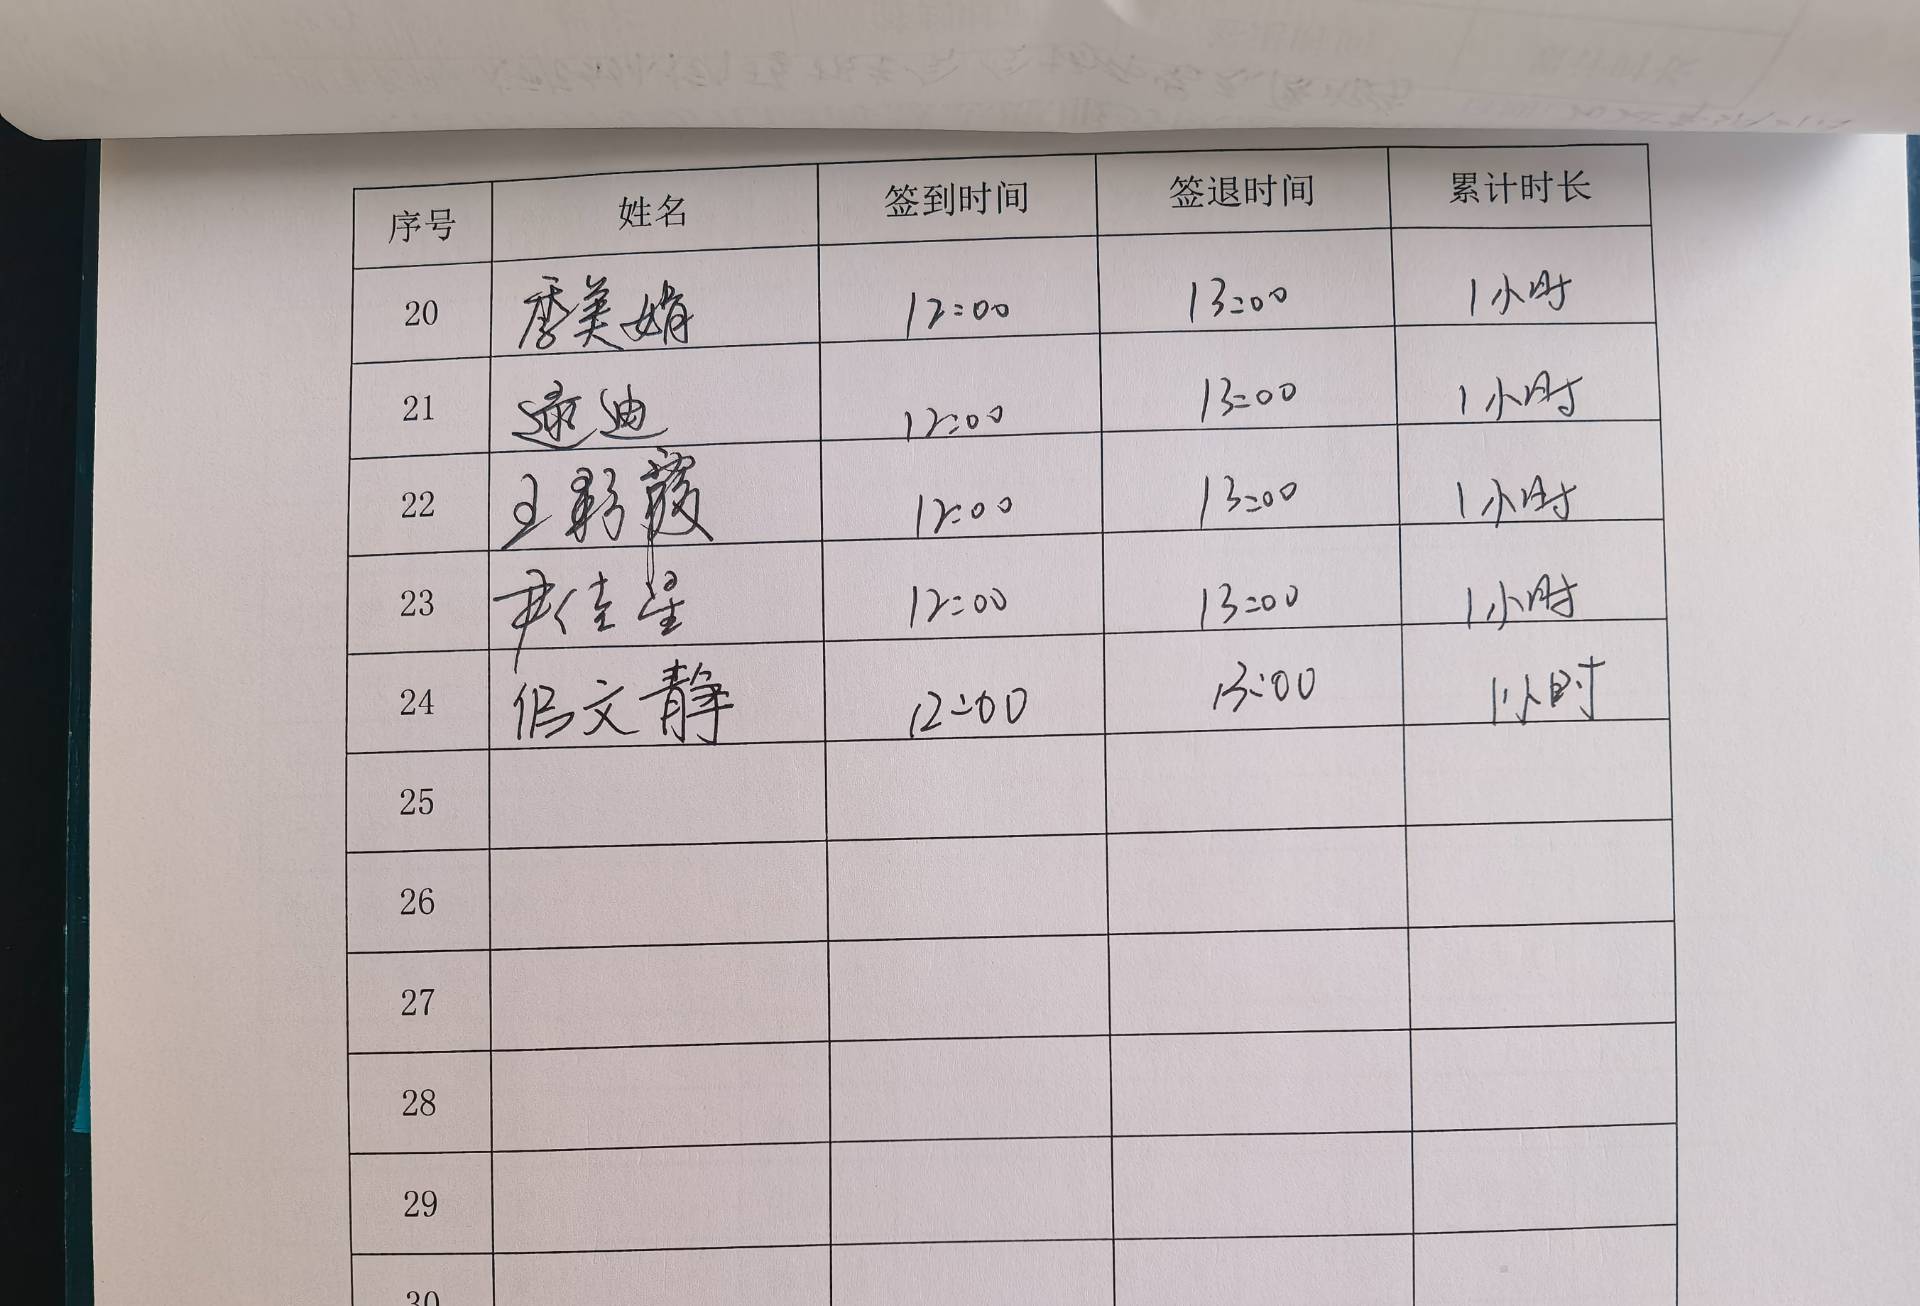 序号 姓名 签到时间 签退时间 累计时长
20 美娟 12:00 13:00 1小时
21 逯迪 12:00 13:00 1小时
22 王彩霞 12:00 13:00 1小时
23 尹佳星 12:00 13:00 1小时
24 文静 12:00 13:00 1小时
25
26
27
28
29
30